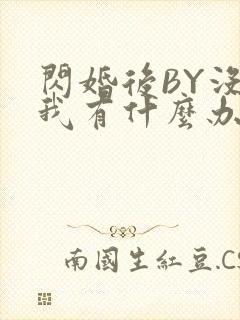 閃婚後BY沒
我有什麼办
南國生紅豆.CS